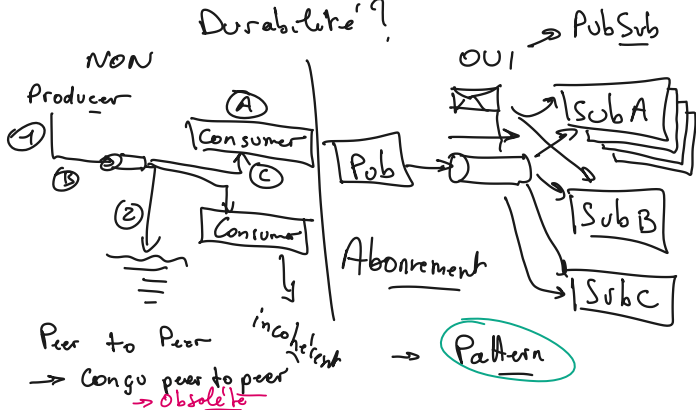 Durabilité ?
NON
Producer
1
B
A
Consumer
C
2
Consumer
incohérent
Peer to Peer
→ Congu peer to peer
→ Obsolète
OUI → PubSub
Pub
SubA
SubB
SubC
Abonnement
→ Pattern